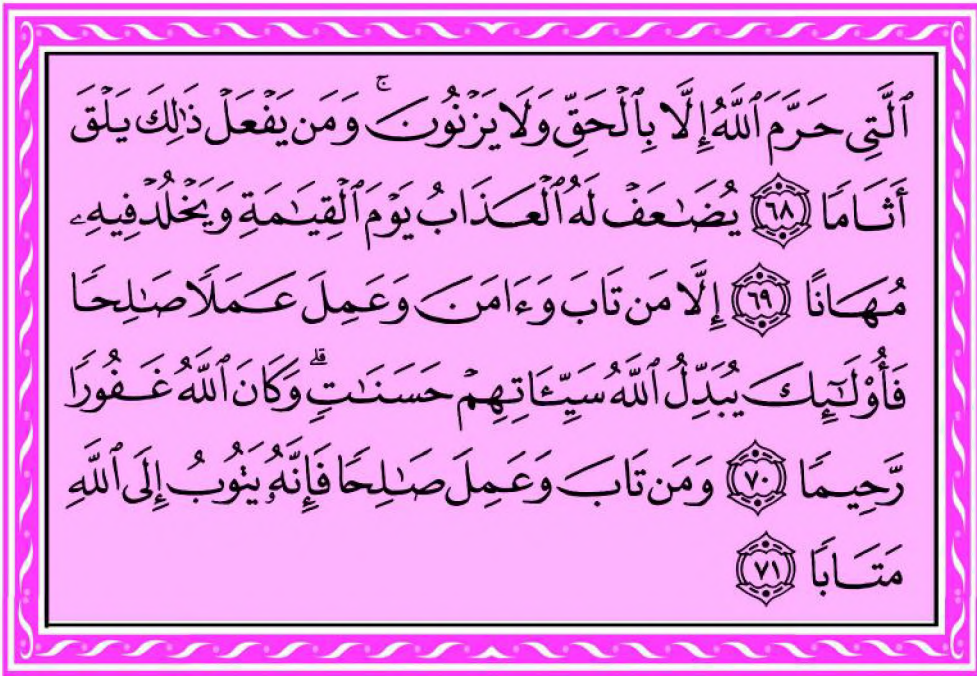 ٱلَّتِى حَرَّمَ ٱللَّهُ إِلَّا بِٱلْحَقِّ وَلَا يَزْنُونَ ۚ وَمَن يَفْعَلْ ذَٰلِكَ يَلْقَ
أَثَامًا ٦٨ يُضَٰعَفْ لَهُ ٱلْعَذَابُ يَوْمَ ٱلْقِيَٰمَةِ وَيَخْلُدْ فِيهِۦ
مُهَانًا ٦٩ إِلَّا مَن تَابَ وَءَامَنَ وَعَمِلَ عَمَلًا صَٰلِحًا
فَأُو۟لَٰٓئِكَ يُبَدِّلُ ٱللَّهُ سَيِّـَٔاتِهِمْ حَسَنَٰتٍ ۗ وَكَانَ ٱللَّهُ غَفُورًا
رَّحِيمًا ٧٠ وَمَن تَابَ وَعَمِلَ صَٰلِحًا فَإِنَّهُۥ يَتُوبُ إِلَى ٱللَّهِ
مَتَابًا ٧١